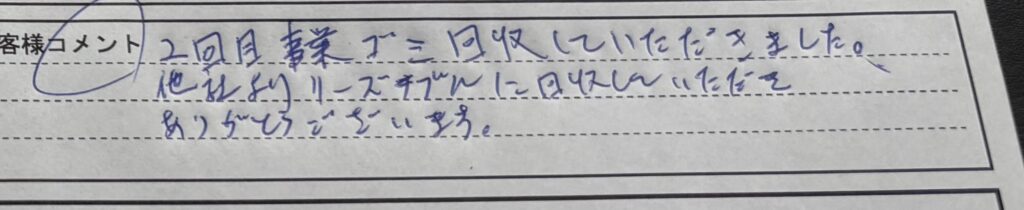 客様コメント 2回目 事業ゴミ回収していただきました。
他社よりリーズナブルに回収していただき
ありがとうございます。